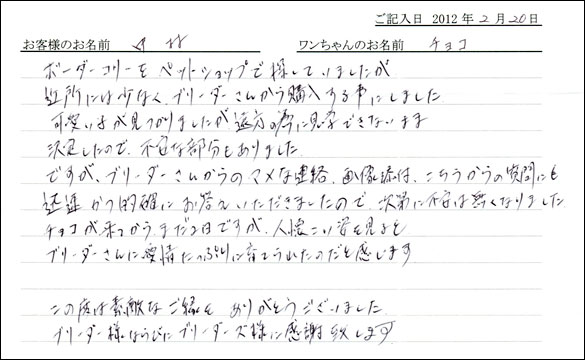 ご記入日 2012年2月20日
お客様のお名前 ワンちゃんのお名前 チョコ
ボーダーコリーをペットショップで探していましたが
近所には少なく、ブリーダーさんから購入する事にしました
可愛い子が見つかりましたが遠方の為に見学できないまま
決定したので、不安な部分もありました
ですが、ブリーダーさんからのマメな連絡、画像添付、こちらからの質問にも
迅速かつ的確にお答えいただきましたので、次第に不安は無くなりました
チョコが来てからまだ2日ですが、人懐こい姿を見ると
ブリーダーさんに愛情たっぷりに育てられたのだと感じます
この度は素敵なご縁を ありがとうございました
ブリーダー様ならびにブリーダーズ様に感謝致します